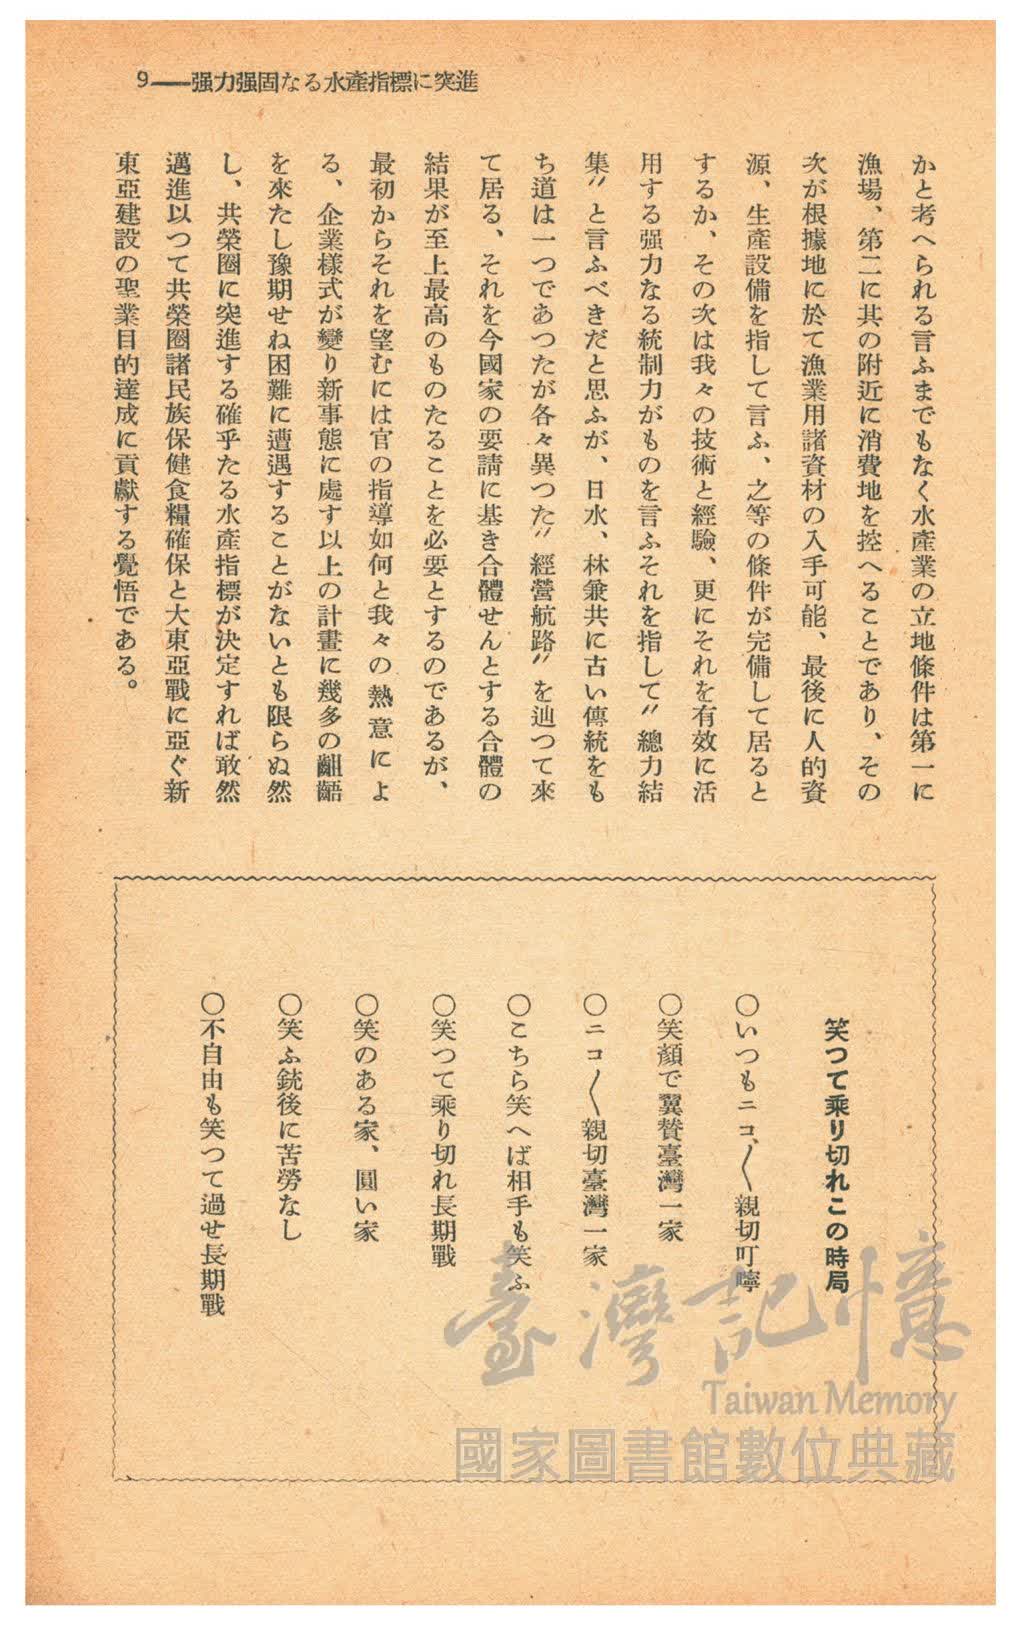 9——强力强固なる水產指標に突進
かと考へられる言ふまでもなく水產業の立地條件は第一に
漁場、第二に其の附近に消費地を控へることであり、その
次が根據地に於て漁業用諸資材の入手可能、最後に人的資
源、生產設備を指して言ふ、之等の條件が完備して居ると
するか、その次は我々の技術と經驗、更にそれを有效に活
用する强力なる統制力がものを言ふそれを指して〃總力結
集〃と言ふべきだと思ふが、日水、林兼共に古い傳統をも
ち道は一つであつたが各々異つた〃經營航路〃を辿つて來
て居る、それを今國家の要請に基き合體せんとする合體の
結果が至上最高のものたることを必要とするのであるが、
最初からそれを望むには官の指導如何と我々の熱意によ
る、企業樣式が變り新事態に處す以上の計畫に幾多の齟齬
を來たし豫期せね困難に遭遇することがないとも限らぬ然
し、共榮圈に突進する確乎たる水產指標が決定すれば敢然
邁進以つて共榮圈諸民族保健食糧確保と大東亞戰に亞ぐ新
東亞建設の聖業目的達成に貢獻する覺悟である。
笑つて乘り切れこの時局
〇いつもニコ〱親切叮嚀
〇笑顏で翼贊臺灣一家
〇ニコ〱親切臺灣一家
〇こちら笑へば相手も笑ふ
〇笑つて乘り切れ長期戰
〇笑のある家、圓い家
〇笑ふ銃後に苦勞なし
〇不自由も笑つて過せ長期戰
臺灣記憶
Taiwan Memory
國家圖書館數位典藏